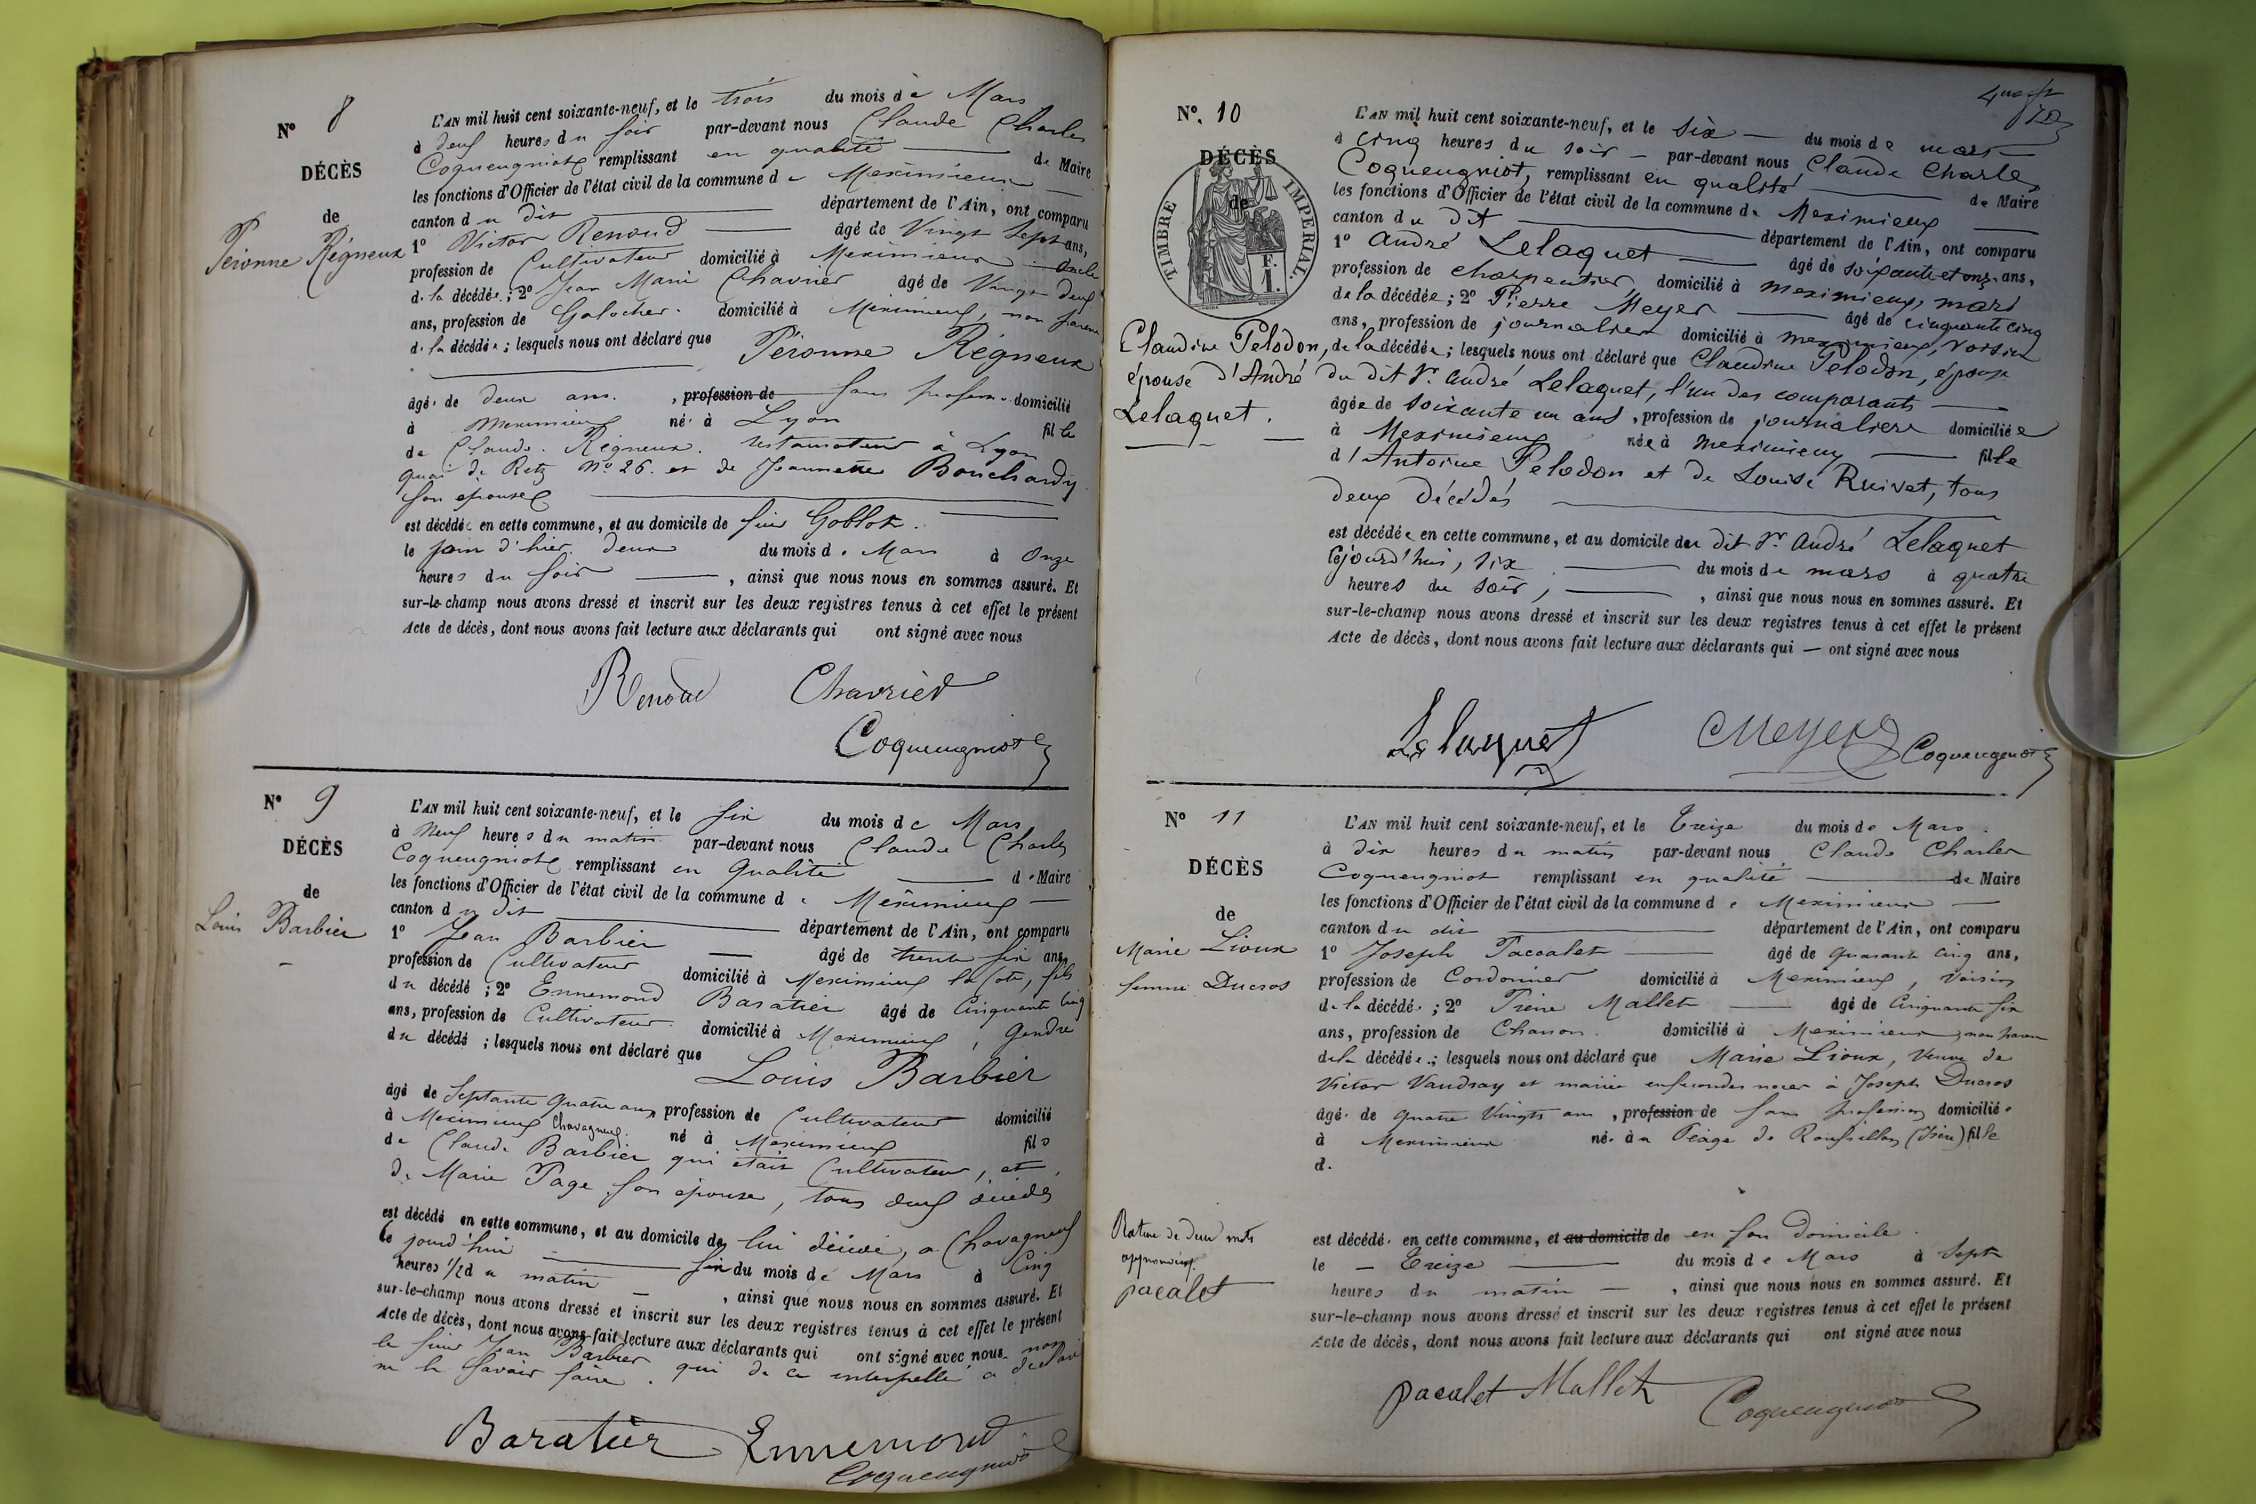 N° 8
DÉCÈS
de
Péronne Régneux
L'AN mil huit cent soixante-neuf, et le trois du mois de Mars
à deux heures du soir par-devant nous Claude Charles
Coqueugniot remplissant en qualité de Maire
les fonctions d'Officier de l'état civil de la commune de Meximieux
canton du dit département de l'Ain, ont comparu
1° Victor Renoud âgé de Vingt Sept ans,
profession de Cultivateur domicilié à Meximieux oncle
de la décédée ; 2° Jean Marie Chavrier âgé de Vingt deux
ans, profession de Galocher domicilié à Meximieux, non parent
de la décédée ; lesquels nous ont déclaré que Péronne Régneux
âgé de deux ans, profession de sans profession domicilié
à Meximieux né à Lyon fille
de Claude Régneux restaurateur à Lyon
quai de Retz N° 26. et de Jeannette Bouchardy
son épouse
est décédée en cette commune, et au domicile de sieur Goblot.
le jour d'hier deux du mois de Mars à Onze
heures du soir, ainsi que nous nous en sommes assuré. Et
sur-le-champ nous avons dressé et inscrit sur les deux registres tenus à cet effet le présent
Acte de décès, dont nous avons fait lecture aux déclarants qui ont signé avec nous
Renoud Chavrier
Coqueugniot
N° 9
DÉCÈS
de
Louis Barbier
L'AN mil huit cent soixante-neuf, et le six du mois de Mars
à Neuf heures du matin par-devant nous Claude Charles
Coqueugniot remplissant en qualité de Maire
les fonctions d'Officier de l'état civil de la commune de Meximieux
canton du dit département de l'Ain, ont comparu
1° Jean Barbier âgé de trente six ans,
profession de Cultivateur domicilié à Meximieux la Côte, fils
du décédé ; 2° Ennemond Baratier âgé de Cinquante Cinq
ans, profession de Cultivateur domicilié à Meximieux, Gendre
du décédé ; lesquels nous ont déclaré que Louis Barbier
âgé de Septante quatre ans, profession de Cultivateur domicilié
à Meximieux Chavagneux. né à Meximieux fils
de Claude Barbier qui était Cultivateur, et
de Marie Page son épouse, tous deux décédés
est décédé en cette commune, et au domicile de lui décédé, a Chavagneux
le jourd'hui six du mois de Mars à Cinq
heures 1/2 du matin, ainsi que nous nous en sommes assuré. Et
sur-le-champ nous avons dressé et inscrit sur les deux registres tenus à cet effet le présent
Acte de décès, dont nous avons fait lecture aux déclarants qui ont signé avec nous non
le sieur Jean Barbier qui de ce interpellé a déclaré
ne le savoir faire.
Baratier Ennemond
Coqueugniot
N°. 10
DÉCÈS
de
TIMBRE IMPERIAL.
F.
1.
Claudine Pelodon,
épouse d'André
Lelaquet.
L'AN mil huit cent soixante-neuf, et le six du mois de mars
à cinq heures du soir par-devant nous Claude Charles
Coqueugniot, remplissant en qualité de Maire
les fonctions d'Officier de l'état civil de la commune de Meximieux
canton du dit département de l'Ain, ont comparu
1° André Lelaquet âgé de soixante et onze ans,
profession de charpentier, domicilié à meximieux, mari
de la décédée ; 2° Pierre Meyer âgé de cinquante cinq
ans, profession de journalier domicilié à meximieux, voisin
de la décédée ; lesquels nous ont déclaré que Claudine Pelodon, épouse
du dit Sr. André Lelaquet, l'un des comparants
âgée de soixante un ans, profession de journalière domiciliée
à Meximieux née à Meximieux fille
d'Antoine Pelodon et de Louise Ruivet, tous
deux Décédés
est décédée en cette commune, et au domicile du dit Sr André Lelaquet
cejourd'hui, six du mois de mars à quatre
heures du soir, ainsi que nous nous en sommes assuré. Et
sur-le-champ nous avons dressé et inscrit sur les deux registres tenus à cet effet le présent
Acte de décès, dont nous avons fait lecture aux déclarants qui — ont signé avec nous
Lelaquet Meyer Coqueugniot
N° 11
DÉCÈS
de
Marie Lioux
femme Ducros
L'AN mil huit cent soixante-neuf, et le Treize du mois de Mars
à dix heures du matin par-devant nous Claude Charles
Coqueugniot remplissant en qualité de Maire
les fonctions d'Officier de l'état civil de la commune de Meximieux
canton du dit département de l'Ain, ont comparu
1° Joseph Pacalet âgé de quarante cinq ans,
profession de Cordonnier domicilié à Meximieux, Voisin
de la décédée ; 2° Pierre Mallet âgé de Cinquante six
ans, profession de Charron domicilié à Meximieux, non parent
de la décédée ; lesquels nous ont déclaré que Marie Lioux, Veuve de
Victor Vaudray et mariée en secondes noces à Joseph Ducros
âgé de quatre Vingts ans, profession de sans profession domiciliée
à Meximieux née au Péage de Roussillon (Isère) fille
d.
est décédé en cette commune, et au domicile de en son domicile.
le Treize du mois de Mars à Sept
heures du matin, ainsi que nous nous en sommes assuré. Et
sur-le-champ nous avons dressé et inscrit sur les deux registres tenus à cet effet le présent
Acte de décès, dont nous avons fait lecture aux déclarants qui ont signé avec nous
Rature de deux mots
pacalet
pacalet Mallet Coqueugniot